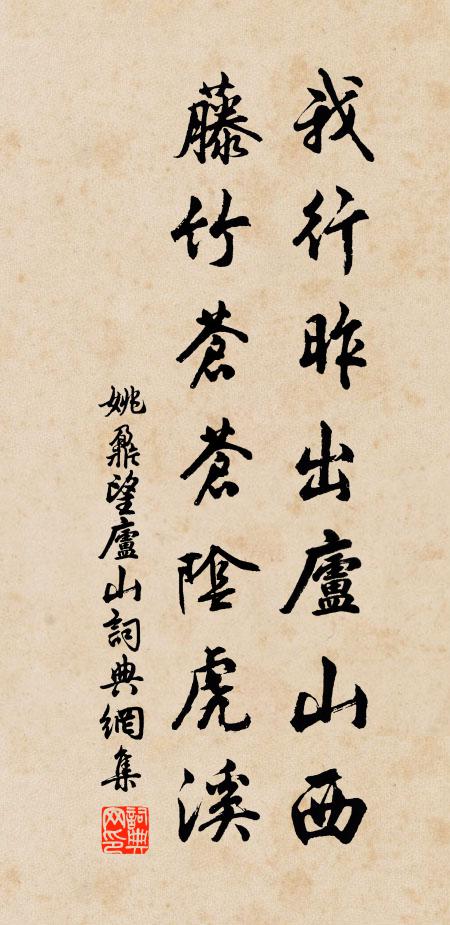 我行昨出廬山西
藤竹蒼蒼陰虎溪
姚鼐望廬山詞典網集
詞典网印